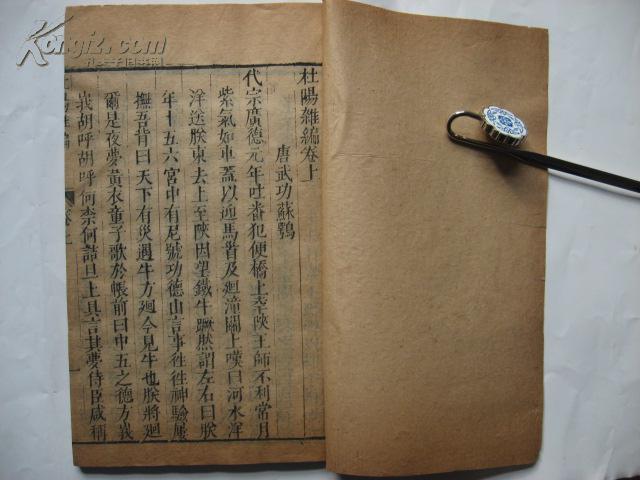 杜陽雜編卷上
唐武功蘇鶚
代宗廣德元年吐蕃犯便橋上幸陝王師不利常月
紫氣如車蓋以迎馬首及廻潼關上嘆曰河水洋
洋送朕東去上至陝因望鐵牛蹶然謂左右曰朕
年十五六宮中有尼號功德山言事徃徃神驗屢
撫吾背曰天下有災遇牛方廻今見牛也朕將廻
爾是夜夢黃衣童子歌於帳前曰中五之德方峩
峩胡呼胡呼何柰何詰旦上具言其夢侍臣咸稱
Kongfz.com